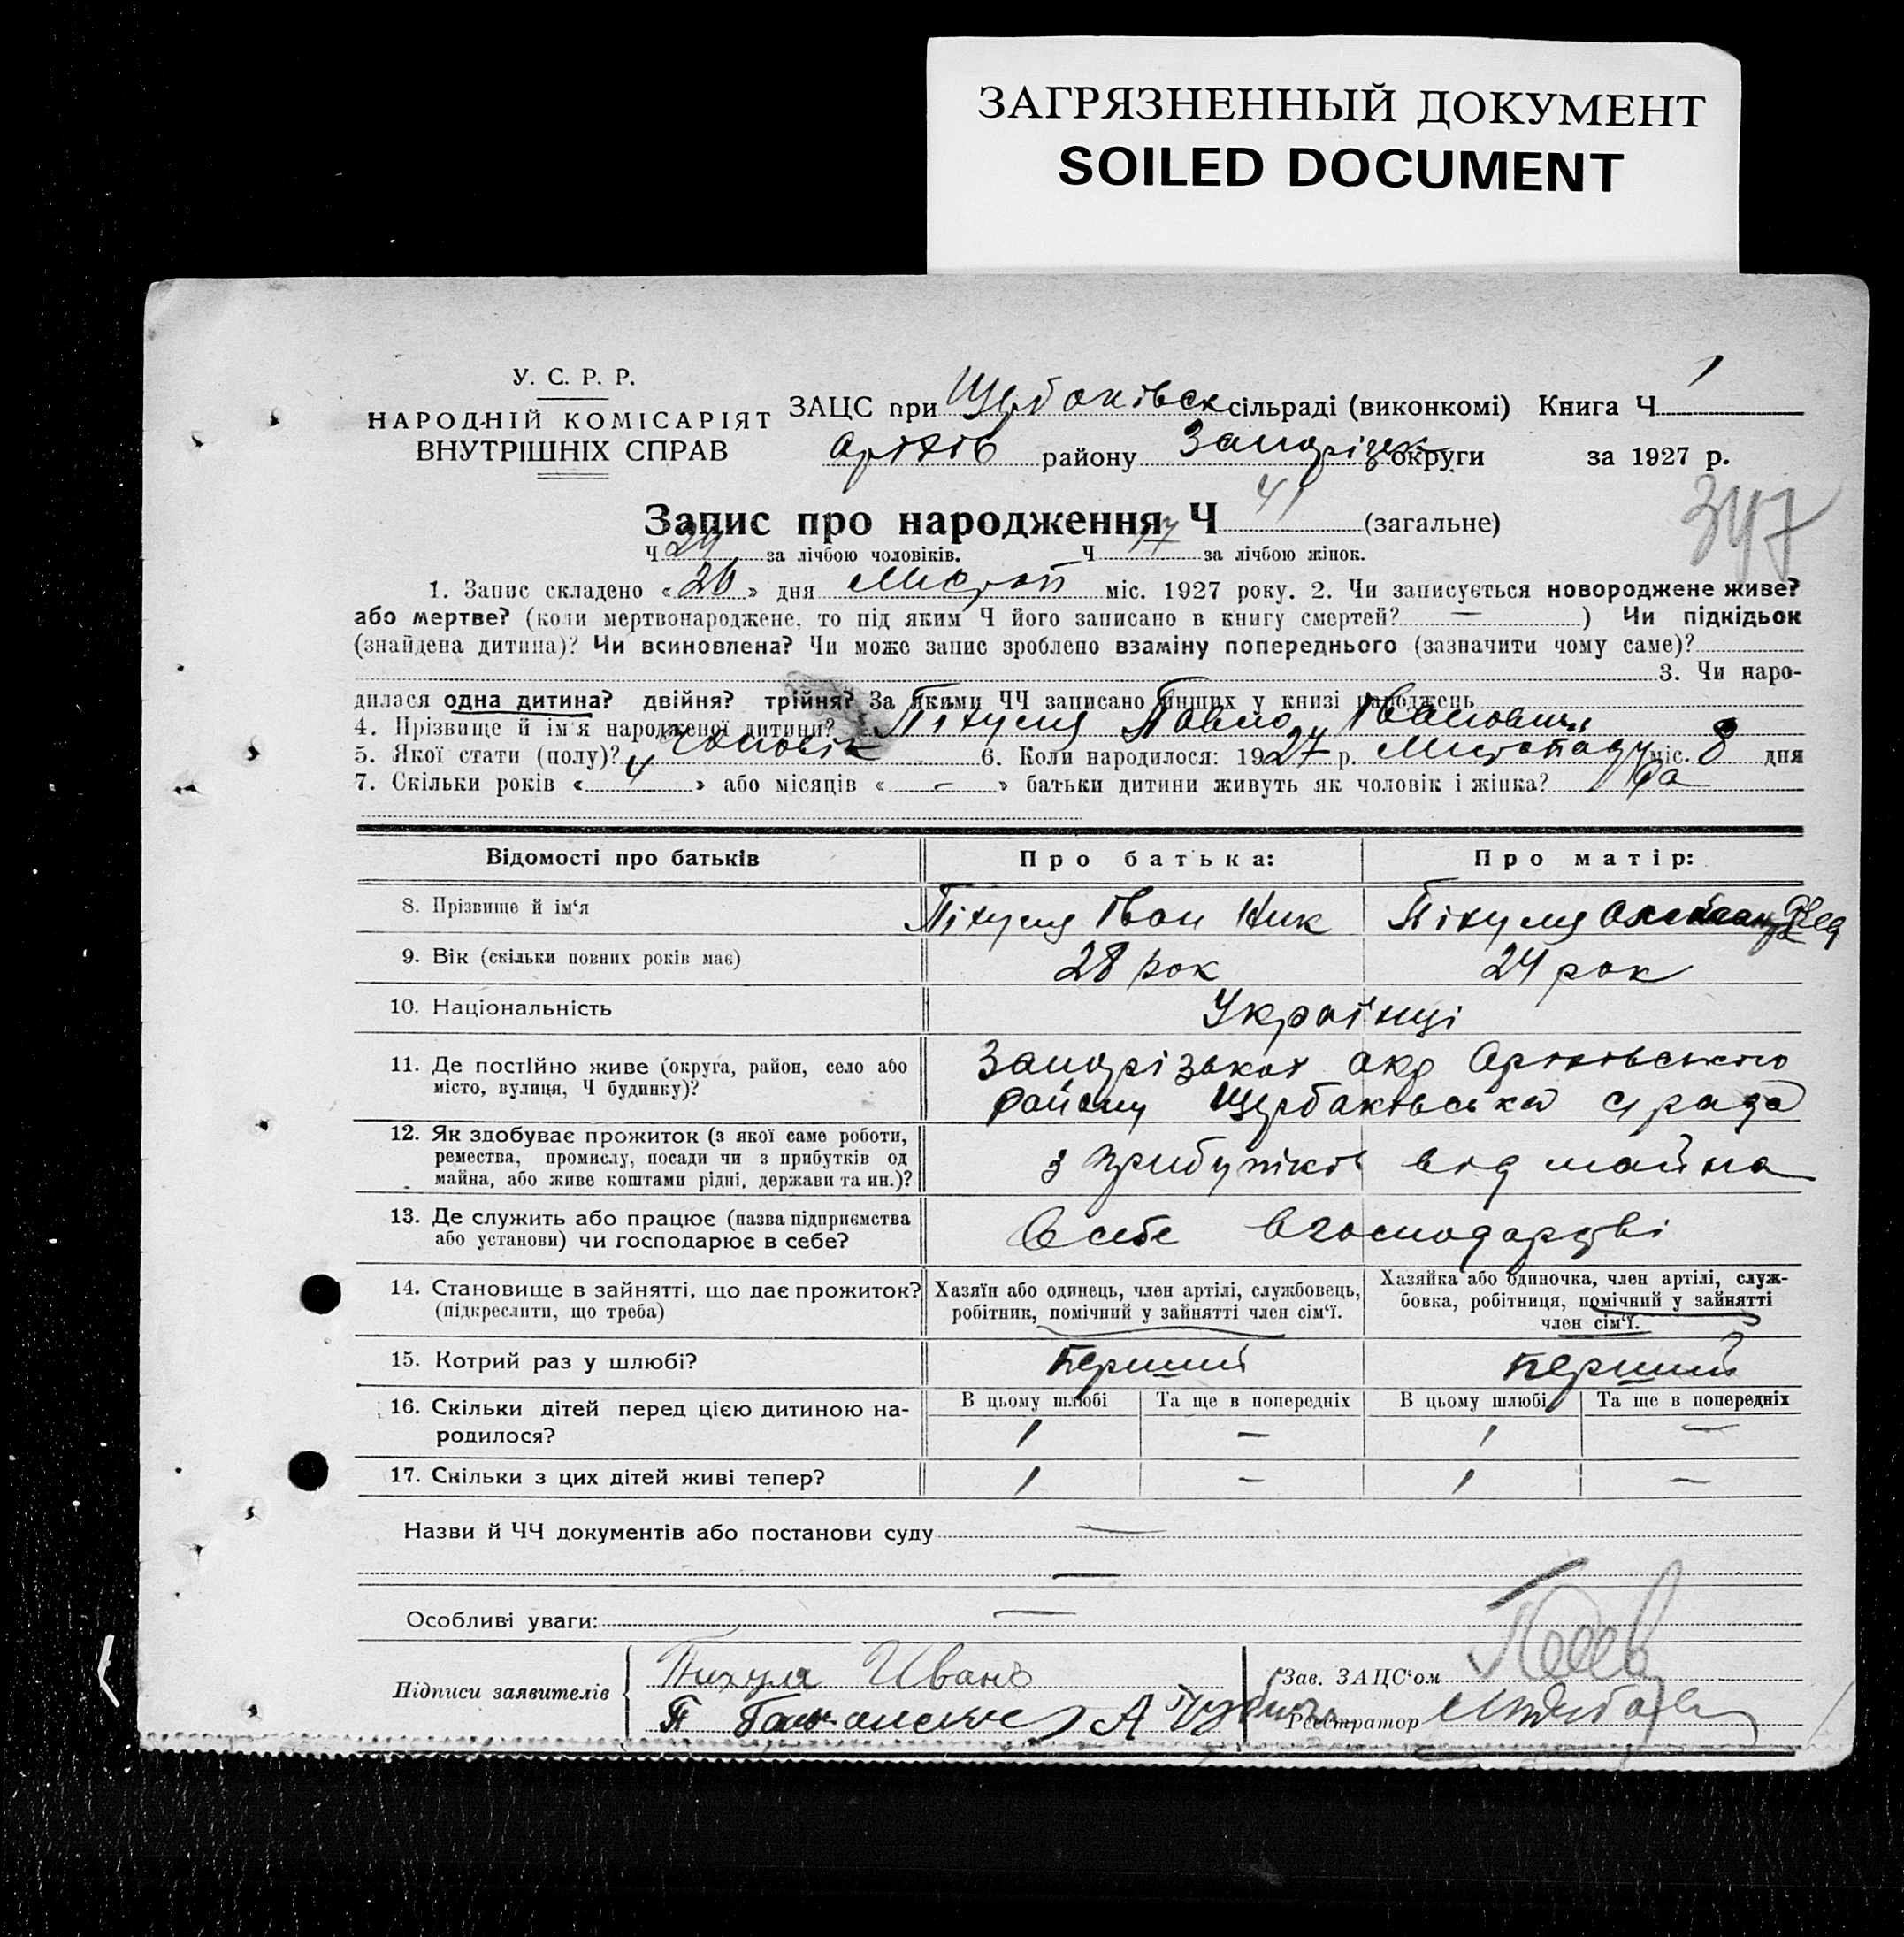 ЗАГРЯЗНЕННЫЙ ДОКУМЕНТ
SOILED DOCUMENT
У. С. Р. Р.
НАРОДНІЙ КОМІСАРІЯТ
ВНУТРІШНІХ СПРАВ
ЗАЦС при Щербаківськ сільраді (виконкомі) Книга Ч 1
Оріхів району Запоріз округи за 1927 р.
347
Запис про народження Ч 41 (загальне)
Ч 24 за лічбою чоловіків. Ч 17 за лічбою жінок.
1. Запис складено « 26 » дня Листоп міс. 1927 року. 2. Чи записується новороджене живе?
або мертве? (коли мертвонароджене, то під яким Ч його записано в книгу смертей? — ) Чи підкідьок
(знайдена дитина)? Чи всиновлена? Чи може запис зроблено взаміну попереднього (зазначити чому саме)?
3. Чи наро-
дилася одна дитина? двійня? трійня? За якими ЧЧ записано інших у книзі народжень
4. Прізвище й ім'я народженої дитини? Піхуля Павло Іванович
5. Якої стати (полу)? Чоловік 6. Коли народилося: 1927 р. Листопаду міс. 8 дня
7. Скільки років « 4 » або місяців « – » батьки дитини живуть як чоловік і жінка? Да
Відомості про батьків Про батька: Про матір:
8. Прізвище й ім'я Піхуля Іван Ник Піхуля
9. Вік (скільки повних років має) 28 рок 24 рок
10. Національність Українці
11. Де постійно живе (округа, район, село або Запорізької окр Оріхівського
місто, вулиця, Ч будинку)? району Щербаківська с рада
12. Як здобуває прожиток (з якої саме роботи,
ремества, промислу, посади чи з прибутків од з прибутків від майна
майна, або живе коштами рідні, держави та ин.)?
13. Де служить або працює (назва підприємства В себе в господарстві
або установи) чи господарює в себе?
14. Становище в зайнятті, що дає прожиток? Хазяїн або одинець, член артілі, службовець, Хазяйка або одиночка, член артілі, служ-
(підкреслити, що треба) робітник, помічний у зайнятті член сім'ї. бовка, робітниця, помічний у зайнятті
член сім'ї.
15. Котрий раз у шлюбі? Перший Перший
16. Скільки дітей перед цією дитиною на- В цьому шлюбі Та ще в попередніх В цьому шлюбі Та ще в попередніх
родилося? 1 — 1 —
17. Скільки з цих дітей живі тепер? 1 — 1 —
Назви й ЧЧ документів або постанови суду —
—
Особливі уваги: —
Підписи заявителів Пихуля Иванъ Зав. ЗАЦС'ом
Реєстратор